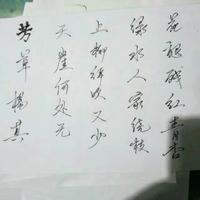 花褪残红青杏
绿水人家绕枝
上柳绵吹又少
天涯何处无
芳草 杨